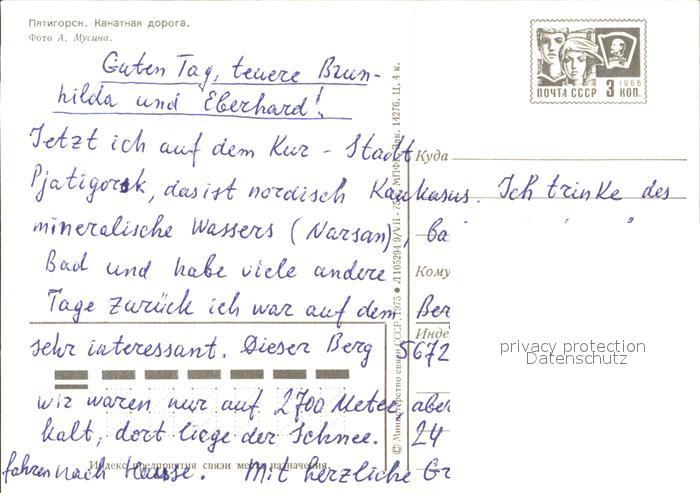 Пятигорск. Канатная дорога.
Фото А. Мусина.
ПОЧТА СССР 1966 3 КОП.
Guten Tag, teuere Brun-
hilda und Eberhard!
Jetzt ich auf dem Kur - Stadt
Куда
Pjatigorsk, das ist nordisch Kaukasus. Ich trinke des
mineralische Wassers (Narsan), ba
Bad und habe viele andere
Кому
Tage zurück ich war auf dem Ber
Инде
sehr interessant. Dieser Berg 5672
privacy protection
Datenschutz
wir waren nur auf 2700 Meter aber
kalt, dort liege der Schnee. 24
Индекс предприятия связи места назначения.
fahren nach Hause. Mit herzliche Gr
© Министерство связи СССР, 1975 ● Л 105294 9/VII-75
14276. Ц. 4 к.